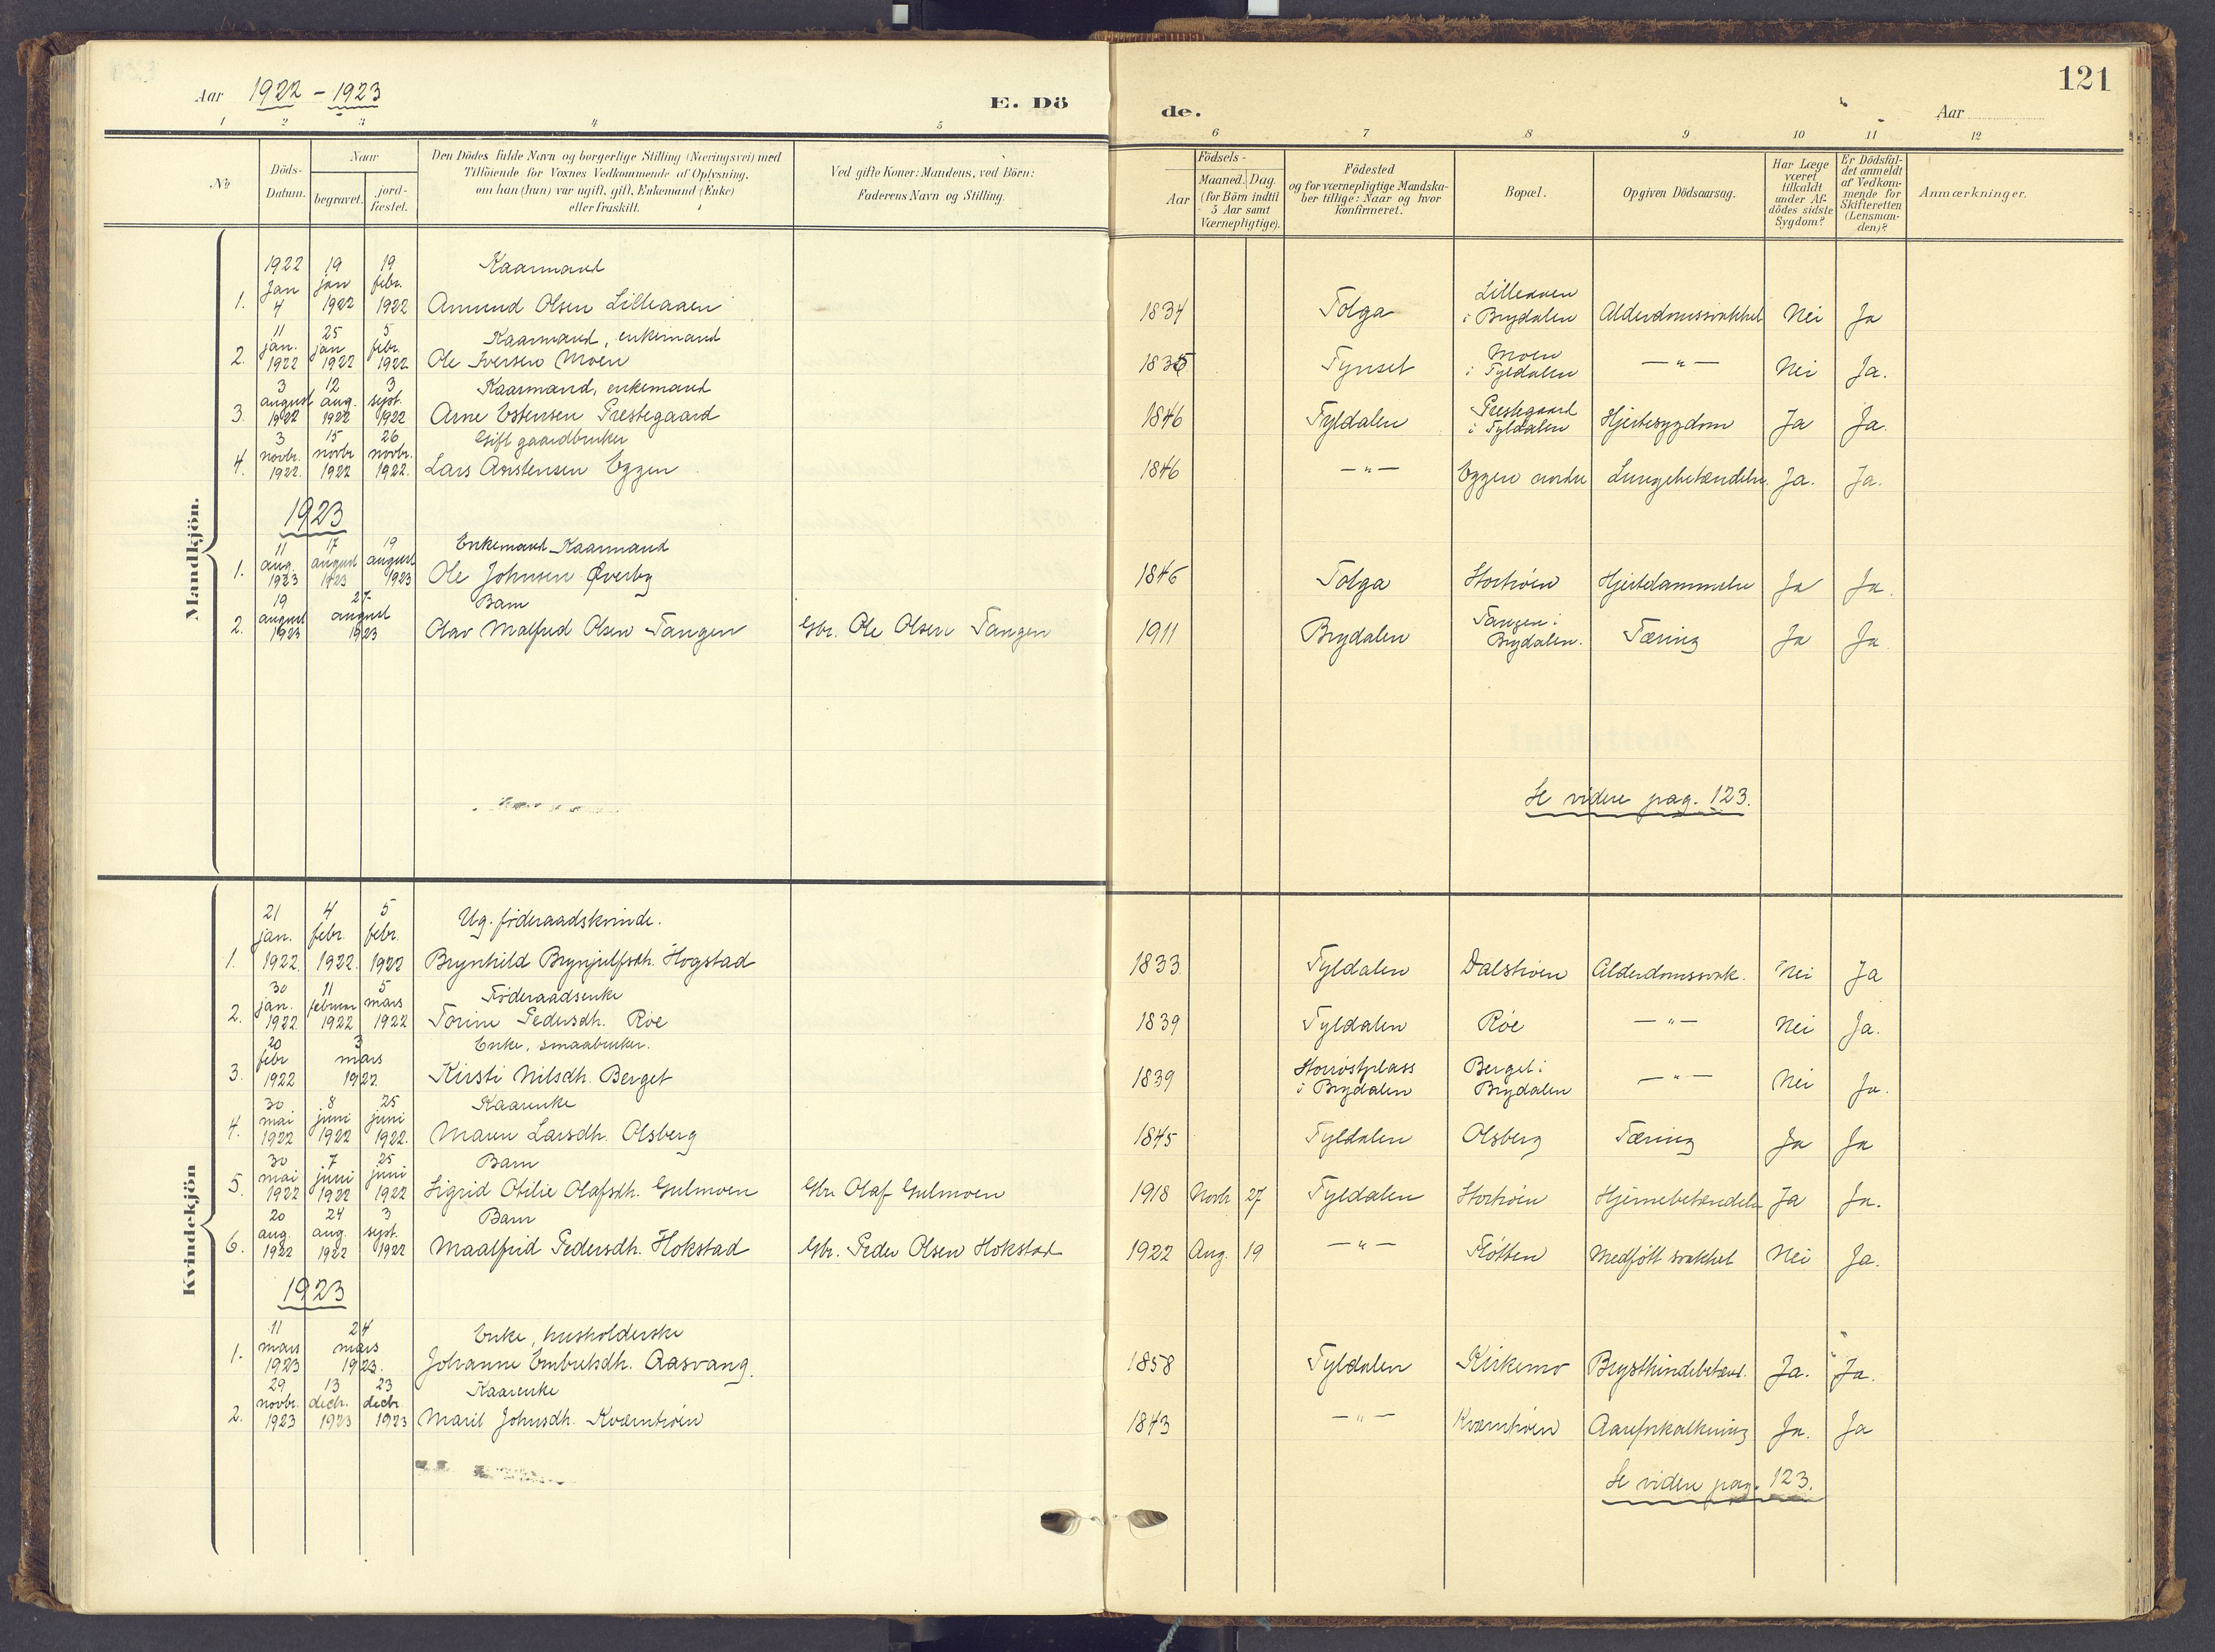 Aar 1922 - 1923
E. Dö
de.
Aar
121
1 2 3 4 5 6 7 8 9 10 11 12
No
Döds-Datum.
Naar
begravet.
jord-fæstet.
Den Dödes fulde Navn og borgerlige Stilling (Næringsvei) med
Tilföiende for Voxnes Vedkommende af Oplysning,
om han (hun) var ugift, gift, Enkemand (Enke)
eller fraskilt.
Ved gifte Koner: Mandens, ved Börn:
Faderens Navn og Stilling.
Födsels-
Aar
Maaned. Dag.
(for Börn indtil
5 Aar samt
Værnepligtige).
Födested
og for værnepligtige Mandska-
ber tillige: Naar og hvor
konfirmeret.
Bopæl.
Opgiven Dödsaarsag.
Har Læge
været
tilkaldt
under Af-
dödes sidste
Sygdom?
Er Dödsfal-
det anmeldt
af Vedkom-
mende for
Skifteretten
(Lensman-
den)?
Anmærkninger.
Mandkjön.
1922 19 19 Kaarmand
Jan jan febr.
1. 4 1922 1922 Amund Olsen Lilleaaen 1834 Tolga Lilleaaen i Brydalen Alderdomssvakhet Nei Ja
11 25 5 Kaarmand, enkemand
jan. jan febr.
2. 1922 1922 1922 Ole Iversen Moen 1835 Tynset Moen i Tyldalen —"— Nei Ja.
3 12 3 Kaarmand, enkemand
august aug. sept.
3. 1922 1922 1922 Arne Estensen Prestegaard 1846 Tyldalen Prestegaard i Tyldalen Hjertesygdom Ja Ja.
3 15 26 Gift gaardbruker
novbr. novbr novbr.
4. 1922. 1922 1922. Lars Arnstensen Eggen 1846 —"— Eggen nordre Lungebetændelse. Ja. Ja.
1923
11 17 19 Enkemand Kaarmand
aug. august august
1. 1923 1923 1923 Ole Johnsen Øverby 1846 Tolga Stortrøen Hjertelammelse Ja Ja.
19 27 Barn
august august
2. 1923 1923 Olav Malfred Olsen Tangen Gbr. Ole Olsen Tangen 1911 Brydalen Tangen i Brydalen. Tæring Ja Ja
Se videre pag. 123.
Kvindekjön
21 4 5 Ug. føderaadskvinde.
jan. febr. febr.
1. 1922. 1922. 1922 Brynhild Brynjulfsdh. Hogstad 1833 Tyldalen Dalstrøen Alderdomssvak. Nei Ja
30 11 5 Føderaadsenke
jan. februar mars
2. 1922 1922 1922 Torine Pedersdh. Røe 1839 Tyldalen Røe —"— Nei Ja.
20 3 Enke, smaabruker.
febr mars
3. 1922 1922 Kirsti Nilsdh. Berget 1839 i Brydalen Berget i Brydalen —"— Nei Ja.
30 8 25 Kaarenke
mai juni juni
4. 1922 1922 1922. Maren Larsdh. Olsberg 1845 Tyldalen Olsberg Tæring Ja Ja
30 7 25 Barn
mai juni juni
5. 1922 1922 1922 Sigrid Otilie Olafsdh. Gulmoen Gbr. Olaf Gulmoen 1918 Novbr 27 Tyldalen Stortrøen Hjernebetændelse Ja Ja.
20 24 3 Barn
aug. aug. sept.
6. 1922 1922 1922 Maalfrid Pedersdh. Hokstad Gbr. Peder Olsen Hokstad 1922 Aug. 19 —"— Fløtten Medfött svakhet Nei Ja.
1923
11 24 Enke, husholderske
mars mars
1. 1923 1923. Johanne Embretsdh. Aasvang. 1858 Tyldalen Kirkemo Brysthindebetænd. Ja. Ja.
29 13 23 Kaarenke
novbr. decbr. decbr.
2. 1923 1923 1923 Marit Johnsdh. Kværntrøen 1843 —"— Kværntrøen Aareforkalkning Ja. Ja
Se videre pag. 123.